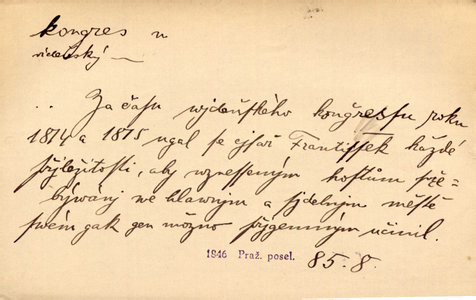 kongres u
vídeňský —
.. Za času wjdeňského kongressu roku
1814 a 1815 ugal se cjsař Frantissek každé
přjležitosti, aby wznesseným hostům pře-
býwánj we hlawnjm a sjdelnjm městě
swém gak gen možno přjgemným učinil.
1846 Praž. posel. 85.8.